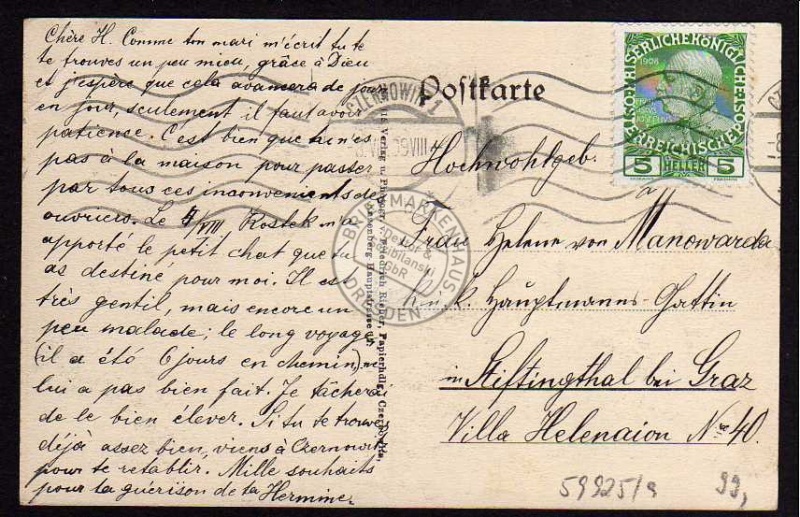 Chère H. Comme ton mari m'écrit tu te
te trouves un peu mieu, grâce à Dieu
et j'espère que cela avancera de jour
en jour, seulement il faut avoir
patience. C'est bien que tu n'es
pas à la maison pour passer
par tous ces inconvenients de
ouvriers. Le 4/VIII Rostek m'a
apporté le petit chat que tu
as destiné pour moi. Il est
très gentil, mais encore un
peu malade; le long voyage
(il a été 6 jours en chemin) ne
lui a pas bien fait. Je tâcherai
de le bien élever. Si tu te trouves
déjà assez bien, viens à Czernowitz
pour te rétablir. Mille souhaits
pour ta guérison de ta Hermine
Postkarte
CZERNOWITZ 1
KAISERLICHE KÖNIGLICHE
1908
ÖSTERREICHISCHE
5 HELLER 5
Friedrich Rieger, Papierhdlg., Czernowitz,
Hauptstrasse
BRIEFMARKENHAUS
Dexler &
GbR
DRESDEN
Hochwohlgeb.
Frau Helene von Manowarda
k. u. k. Hauptmanns-Gattin
in Stiftingthal bei Graz
Villa Helenaion N. 40.
59925/a
99,